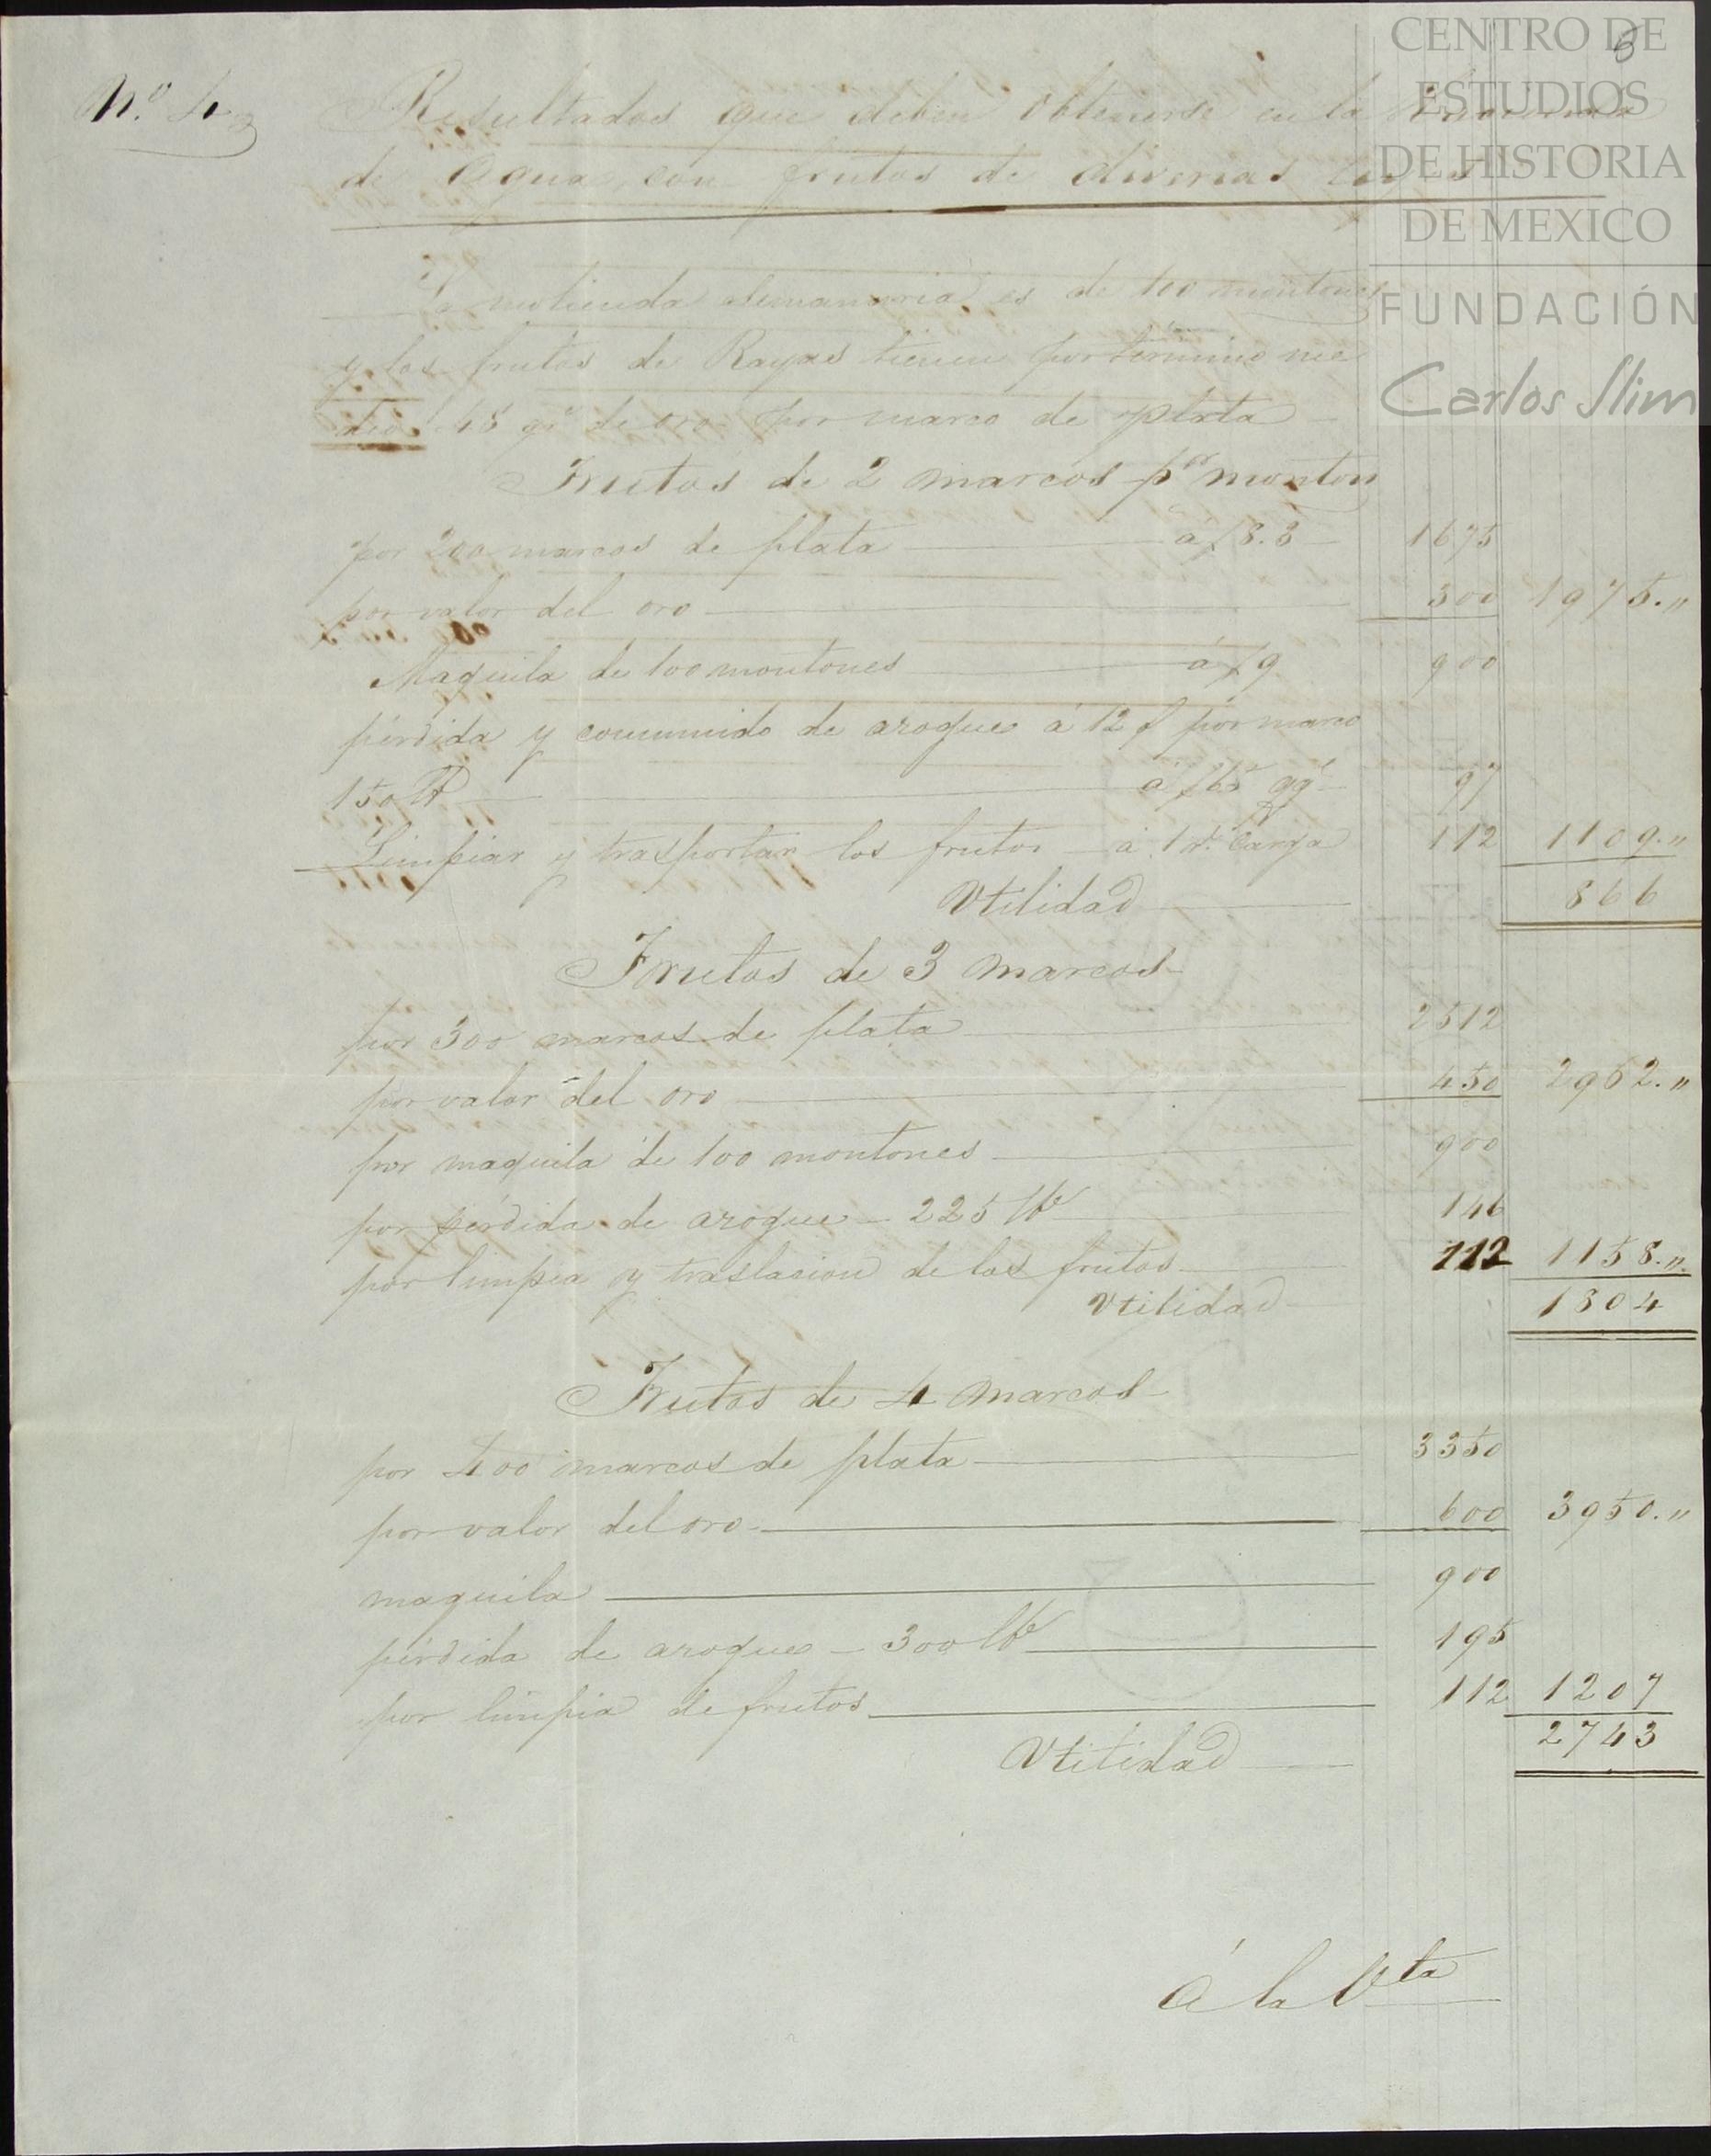 CENTRO DE
ESTUDIOS
DE HISTORIA
DE MEXICO
FUNDACIÓN
Carlos Slim
N.º 4
Resultados que deben obtenerse en la
de Agua, con frutos de diversas
La molienda semanaria es de 100 montones
y los frutos de Rayas tienen por término me
dio 48 gs. de oro por marco de plata
Frutos de 2 marcos pr monton
por 200 marcos de plata á $ 8.3 1675
por valor del oro 300 1975.,,
Maquila de 100 montones á $ 9 900
pérdida y consumido de azogue á 12 por marco
150 á $ 65 qql 97
Limpiar y trasportar los frutos á 1 r. Carga 112 1109.,,
Utilidad 866
Frutos de 3 marcos
por 300 marcos de plata 2512
por valor del oro 450 2962.,,
por maquila de 100 montones 900
por pérdida de azogue 225 lbs 146
por limpia y traslacion de los frutos 112 1158.,,
Utilidad 1804
Frutos de 4 marcos
por 400 marcos de plata 3350
por valor del oro 600 3950.,,
maquila 900
pérdida de azogue 300 lbs 195
por limpia de frutos 112 1207
Utilidad 2743
á la Vta